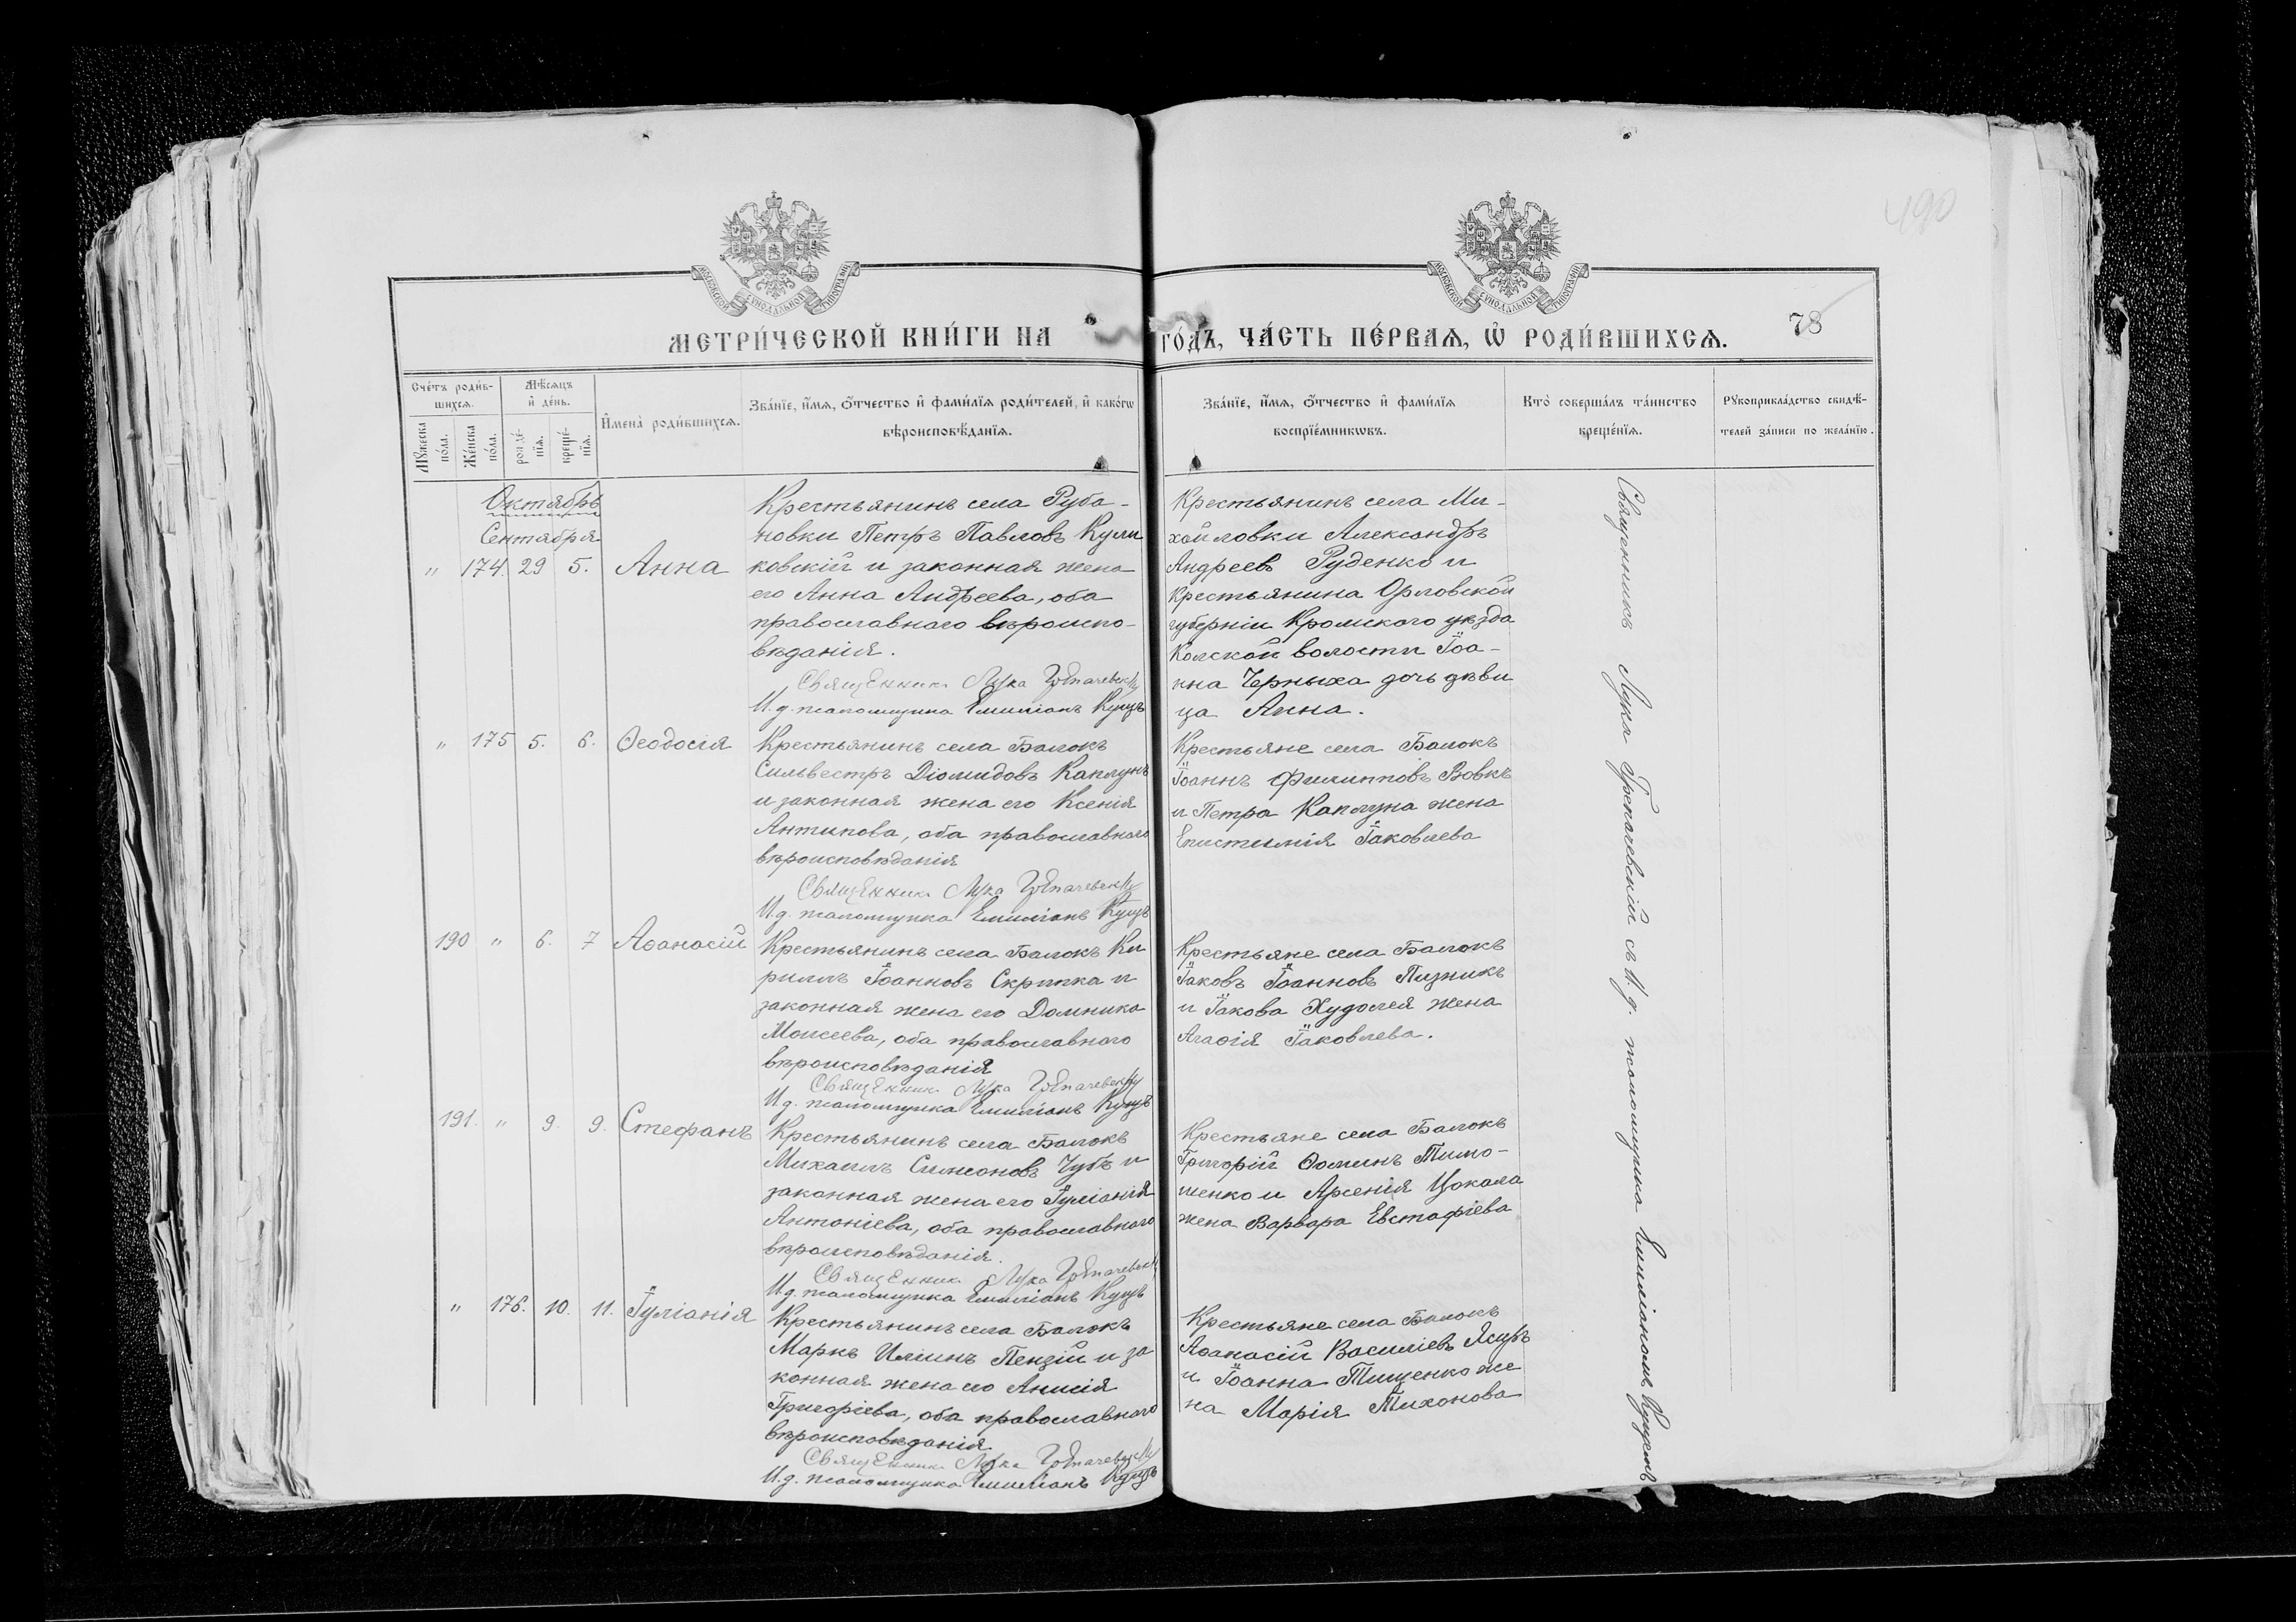 490
МОСКОВСКОЙ СѴНОДАЛЬНОЙ ТИПОГРАФІИ
МОСКОВСКОЙ СѴНОДАЛЬНОЙ ТИПОГРАФІИ
МЕТРИ́ЧЕСКОЙ КНИ́ГИ НА ГО́ДЪ, ЧА́СТЬ ПЕ́РВАЯ, Ѡ҆ РОДИ́ВШИХСЯ.
78
Сче́тъ роди́в-
шихся.
Мѣ́сяцъ
и҆ де́нь.
Мꙋ́жеска
по́ла.
Же́нска
по́ла.
рожде́-
нїя.
креще́-
нїя.
И҆мена̀ роди́вшихся.
Зва́нїе, и҆́мя, ѻ҆́тчество и҆ фами́лїя роди́телей, и҆ како́гѡ
вѣроисповѣ́данїя.
Зва́нїе, и҆́мя, ѻ҆́тчество и҆ фами́лїя
воспрїе́мникѡвъ.
Кто̀ соверша́лъ та́инство
креще́нїя.
Рꙋкоприкла́дство свидѣ́-
телей за́писи по жела́нїю.
Октябрь
Сентября
" 174. 29 5. Анна
Крестьянинъ села Руба-
новки Петръ Павловъ Кули
ковскій и законная жена
его Анна Андреева, оба
православнаго вѣроиспо-
вѣданія.
Священникъ Лука
И.д. псаломщика Емиліанъ Куцъ
Крестьянинъ села Ми-
хайловки Александръ
Андреевъ Руденко и
крестьянина Орловской
губерніи Кромскаго уѣзда
волости Іоа-
нна Черныха дочь дѣви
ца Анна.
" 175 5. 6. Ѳеодосія
Крестьянинъ села Балокъ
Сильвестръ Діомидовъ Каплунъ
и законная жена его Ксенія
Антипова, оба православнаго
вѣроисповѣданія
Священникъ Лука
И.д. псаломщика Емиліанъ Куцъ
Крестьяне села Балокъ
Іоаннъ Филипповъ Вовкъ
и Петра Каплуна жена
Епистимія Іаковлева
190 " 6. 7 Аѳанасій
Крестьянинъ села Балокъ Ки
риллъ Іоанновъ Скрипка и
законная жена его Домника
Моисеева, оба православнаго
вѣроисповѣданія
Священникъ Лука
И.д. псаломщика Емиліанъ Куцъ
Крестьяне села Балокъ
Іаковъ Іоанновъ Пизникъ
и Іакова Худолея жена
Агаѳія Іаковлева.
191. " 9. 9. Стефанъ
Крестьянинъ села Балокъ
Михаилъ Симеоновъ Чубъ и
законная жена его Іуліанія
Антоніева, оба православнаго
вѣроисповѣданія.
Священникъ Лука
И.д. псаломщика Емиліанъ Куцъ
Крестьяне села Балокъ
Григорій Ѳоминъ Тимо-
шенко и Арсенія Цокала
жена Варвара Евстафіева
" 176. 10. 11. Іуліанія
Крестьянинъ села Балокъ
Маркъ Иліинъ Пензій и за
конная жена его Анисія
Григоріева, оба православнаго
вѣроисповѣданія
Священникъ Лука
И.д. псаломщика Емиліанъ Куцъ
Крестьяне села Балокъ
Аѳанасій Василіевъ Ясиръ
и Іоанна Тищенко же
на Марія Тихонова
Священникъ Лука съ И.д. псаломщика Емиліаномъ Куцомъ